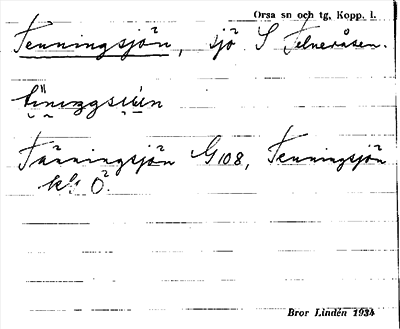 Orsa sn och tg, Kopp. l.
Tenningsjön, sjö S Felneråsen.
Tärningsjön G108, Tenningsjön
kbl Ö.
Bror Lindén 1934